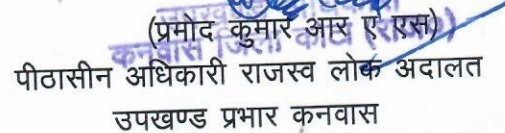 (प्रमोद कुमार आर ए एस)
कनवास जिला कोटा (राज०)
पीठासीन अधिकारी राजस्व लोक अदालत
उपखण्ड प्रभार कनवास